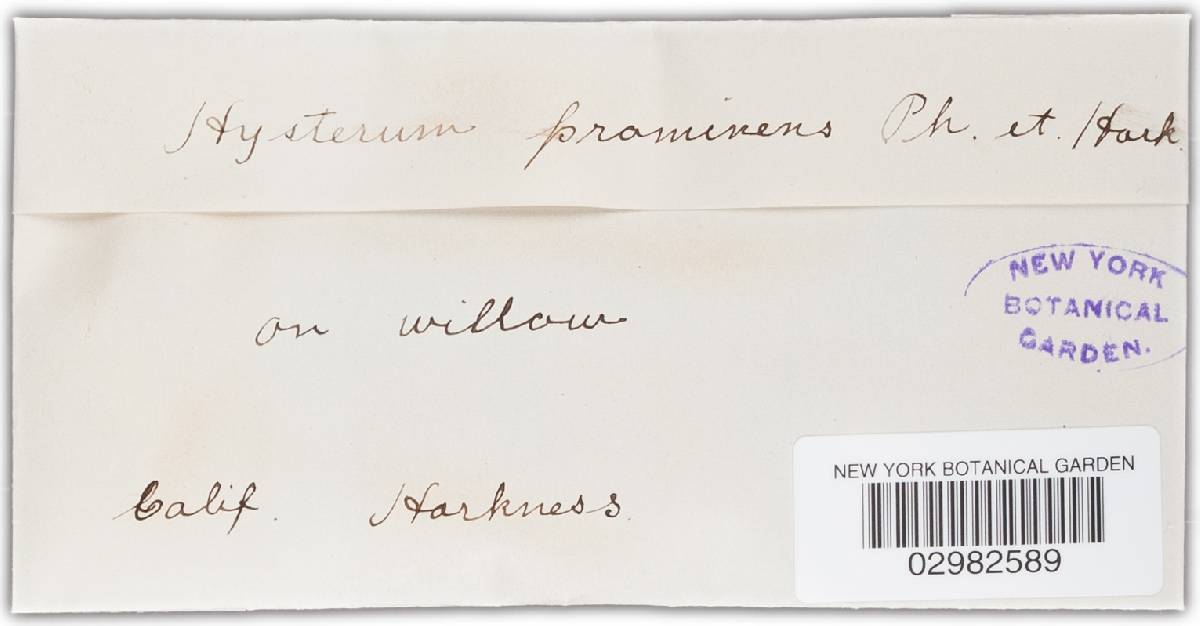 Hysterum prominens Ph. et. Hark.
on willow
NEW YORK
BOTANICAL
GARDEN.
Calif. Harkness.
NEW YORK BOTANICAL GARDEN
02982589